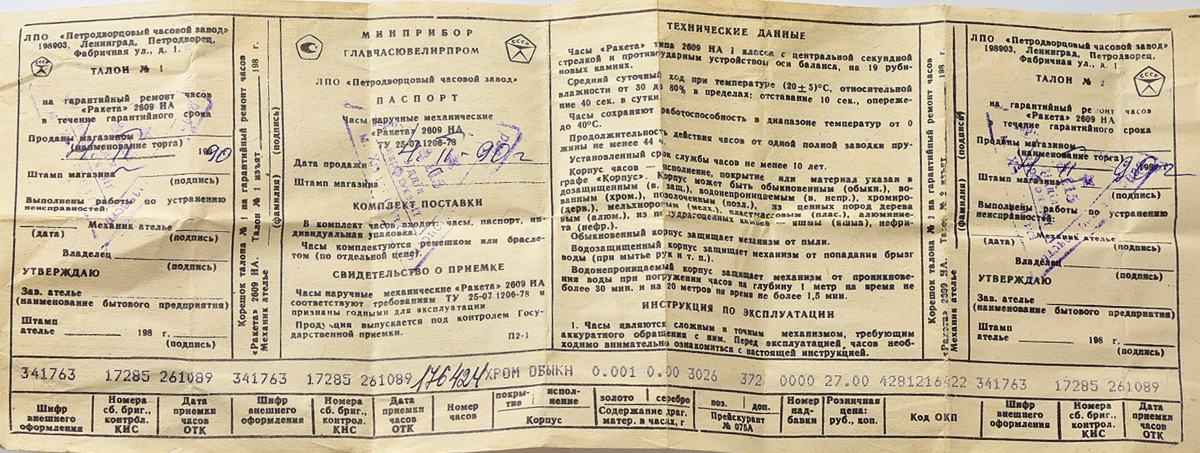 ЛПО «Петродворцовый часовой завод»
198903, Ленинград, Петродворец,
Фабричная ул., д. 1.
ТАЛОН № 1
на гарантийный ремонт часов
«Ракета» 2609 НА
в течение гарантийного срока
Проданы магазином
(наименование торга)
90
Штамп магазина
(подпись)
Выполнены работы по устранению
неисправностей:
Механик ателье
(дата) (подпись)
Владелец
(подпись)
УТВЕРЖДАЮ
Зав. ателье
(наименование бытового предприятия)
Штамп
ателье 198 г.
(подпись)
Корешок талона № 1 на гарантийный ремонт часов
«Ракета» 2609 НА. Талон № 1 изъят 198 г.
Механик ателье (фамилия) (подпись)
МИНПРИБОР
ГЛАВЧАСЮВЕЛИРПРОМ
ЛПО «Петродворцовый часовой завод»
ПАСПОРТ
Часы наручные механические
«Ракета» 2609 НА
ТУ 25-07.1206-78
Дата продажи
Штамп магазина
КОМПЛЕКТ ПОСТАВКИ
В комплект входят: часы, паспорт, ин-
дивидуальная упаковка.
Часы комплектуются ремешком или брасле-
том (по отдельной цене).
СВИДЕТЕЛЬСТВО О ПРИЕМКЕ
Часы наручные механические «Ракета» 2609 НА
соответствуют требованиям ТУ 25-07.1206-78 и
признаны годными для эксплуатации.
Продукция выпускается под контролем Госу-
дарственной приемки.
П2-1
ТЕХНИЧЕСКИЕ ДАННЫЕ
Часы «Ракета» типа 2609 НА 1 класса с центральной секундной
стрелкой и противоударным устройством оси баланса, на 19 руби-
новых камнях.
Средний суточный ход при температуре (20±5)°С, относительной
влажности от 30 до 80% в пределах: отставание 10 сек., опереже-
ние 40 сек. в сутки.
Часы сохраняют работоспособность в диапазоне температур от 0
до 40°С.
Продолжительность действия часов от одной полной заводки пру-
жины не менее 44 ч.
Установленный срок службы часов не менее 10 лет.
Корпус часов — исполнение, покрытие или материал указан в
графе «Корпус». Корпус может быть обыкновенный (обыкн.), во-
дозащищенный (в. защ.), водонепроницаемый (в. непр.), хромиро-
ванный (хром.), позолоченный (позол.), из ценных пород дерева
(дерв.), мельхиоровый (мельх.), пластмассовый (плас.), алюминие-
вым (алюм.), из полудрагоценных камней (яшмы (яшма), нефри-
та (нефр.).
Обыкновенный корпус защищает механизм от пыли.
Водозащищенный корпус защищает механизм от попадания брызг
воды (при мытье рук и т. п.).
Водонепроницаемый корпус защищает механизм от проникнове-
ния воды при погружении часов на глубину 1 метр на время не
более 30 мин. и на 20 метров на время не более 1,5 мин.
ИНСТРУКЦИЯ ПО ЭКСПЛУАТАЦИИ
1. Часы являются сложным и точным механизмом, требующим
аккуратного обращения с ним. Перед эксплуатацией часов необ-
ходимо внимательно ознакомиться с настоящей инструкцией.
Корешок талона № 2 на гарантийный ремонт часов
«Ракета» 2609 НА. Талон № 2 изъят 198 г.
Механик ателье (фамилия) (подпись)
ЛПО «Петродворцовый часовой завод»
198903, Ленинград, Петродворец,
Фабричная ул., д. 1.
ТАЛОН №
на гарантийный ремонт часов
«Ракета» 2609 НА
в течение гарантийного срока
Проданы магазином
(наименование торга)
Штамп магазина
(подпись)
Выполнены работы по устранению
неисправностей:
Механик ателье
(дата) (подпись)
Владелец
(подпись)
УТВЕРЖДАЮ
Зав. ателье
(наименование бытового предприятия)
Штамп
ателье 198 г.
(подпись)
341763 17285 261089 341763 17285 261089 176424 ХРОМ ОБЫКН 0.001 0.00 3026 372 0000 27.00 4281216422 341763 17285 261089
Шифр внешнего оформления
Номера сб. бриг., контрол. КИС
Дата приемки часов ОТК
Шифр внешнего оформления
Номера сб. бриг., контрол. КИС
Дата приемки часов ОТК
Номер часов
покры-тие исполнение
Корпус
золото серебро
Содержание драг. матер. в часах, г
поз. доп.
Прейскурант № 075А
Номер над-бавки
Розничная цена: руб., коп.
Код ОКП
Шифр внешнего оформления
Номера сб. бриг., контрол. КИС
Дата приемки часов ОТК